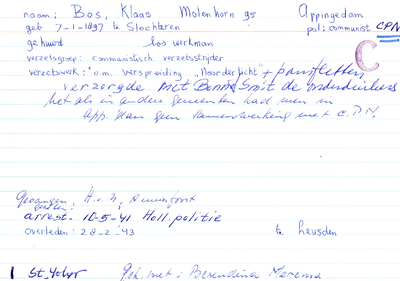 naam: Bos, Klaas Molenhorn 95 Appingedam
geb 7-1-1897 te Slochteren pol: communist CPN
gehuwd los werkman C
verzetsgroep: communistisch verzetsstrijder
verzetswerk: o.m. verspreiding "Noorderlicht" + pamfletten
verzorgde met Bennie Smit de onderduikers
net als in andere gemeenten had men in
App. geen samenwerking met C.P.N.
Gevangen gezeten: H.v.B, Amersfoort
arrest. 10-5-41 Holl. politie
overleden: 28-2-'43 te Leusden
1 St. Geh. met: Berendina Merema